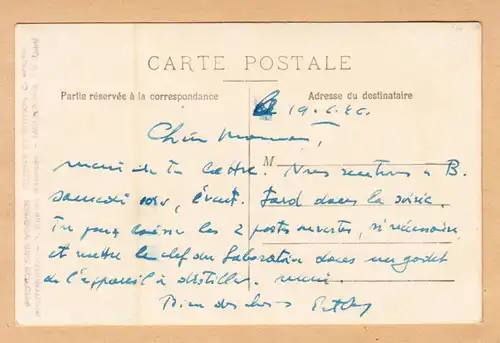 CARTE POSTALE
Partie réservée à la correspondance
Adresse du destinataire
19.6.26.
Chère Maman,
M
merci de ta lettre. Nous rentrons à B.
samedi soir, évent. tard dans la soirée.
Tu peux laisser les 2 portes ouvertes, si nécessaire
et mettre la clef du laboratoire dans un godet
de l'appareil à distiller. merci.
Bien des